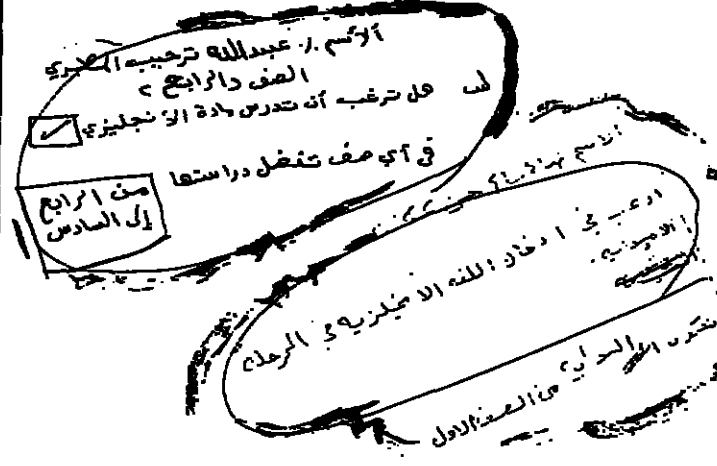 الأسم / عبدالله ترحيب
الصف / الرابع ٢
هل ترغب أن تدرس مادة الانجليزي ✓
في أي صف تفضل دراستها
من الرابع
إلى السادس
الاسم
ارغب في ادخال اللغه الانجليزيه في المرحله
الابتدائيه
من الصف الاول